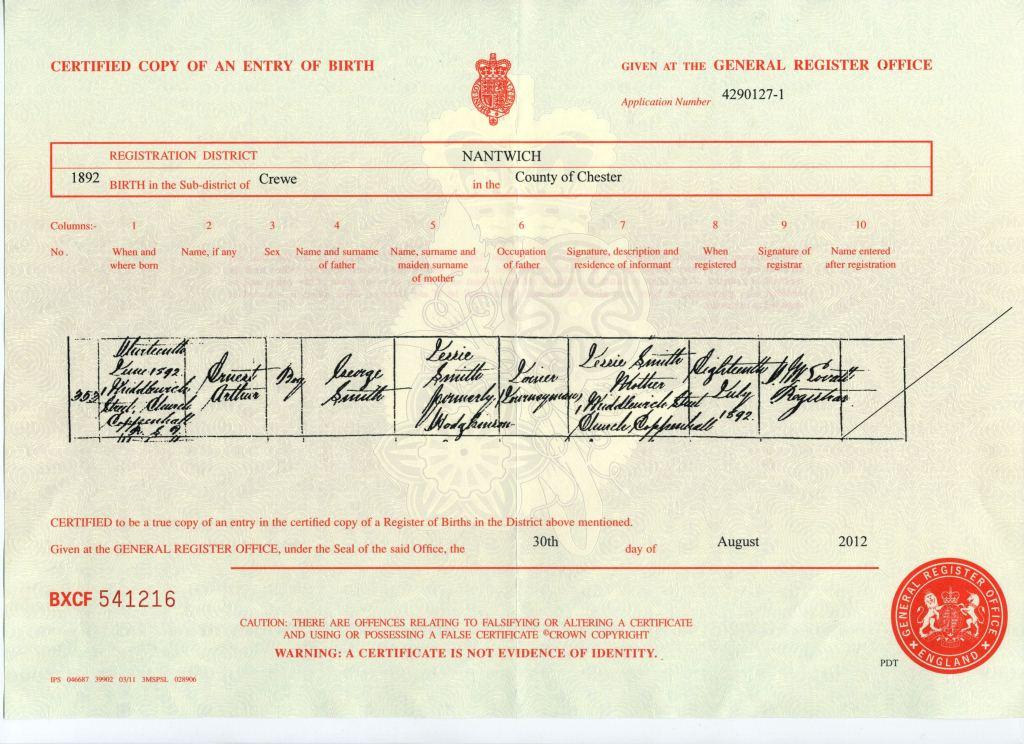 CERTIFIED COPY OF AN ENTRY OF BIRTH
GIVEN AT THE GENERAL REGISTER OFFICE
Application Number 4290127-1
REGISTRATION DISTRICT NANTWICH
1892 BIRTH in the Sub-district of Crewe in the County of Chester
Columns:- 1 2 3 4 5 6 7 8 9 10
No. When and where born Name, if any Sex Name and surname of father Name, surname and maiden surname of mother Occupation of father Signature, description and residence of informant When registered Signature of registrar Name entered after registration
353
Thirteenth
June 1892
1 Middlewich
Street, Church
Coppenhall
Ernest
Arthur
Boy
George
Smith
Smith
formerly
Hodgkinson
(Journeyman)
Smith
Mother
1 Middlewich Street
Church Coppenhall
Eighteenth
July
1892
Registrar
CERTIFIED to be a true copy of an entry in the certified copy of a Register of Births in the District above mentioned.
Given at the GENERAL REGISTER OFFICE, under the Seal of the said Office, the 30th day of August 2012
BXCF 541216
CAUTION: THERE ARE OFFENCES RELATING TO FALSIFYING OR ALTERING A CERTIFICATE
AND USING OR POSSESSING A FALSE CERTIFICATE ©CROWN COPYRIGHT
WARNING: A CERTIFICATE IS NOT EVIDENCE OF IDENTITY.
GENERAL REGISTER OFFICE
ENGLAND
PDT
IPS 046687 39902 03/11 3MSPSL 028906